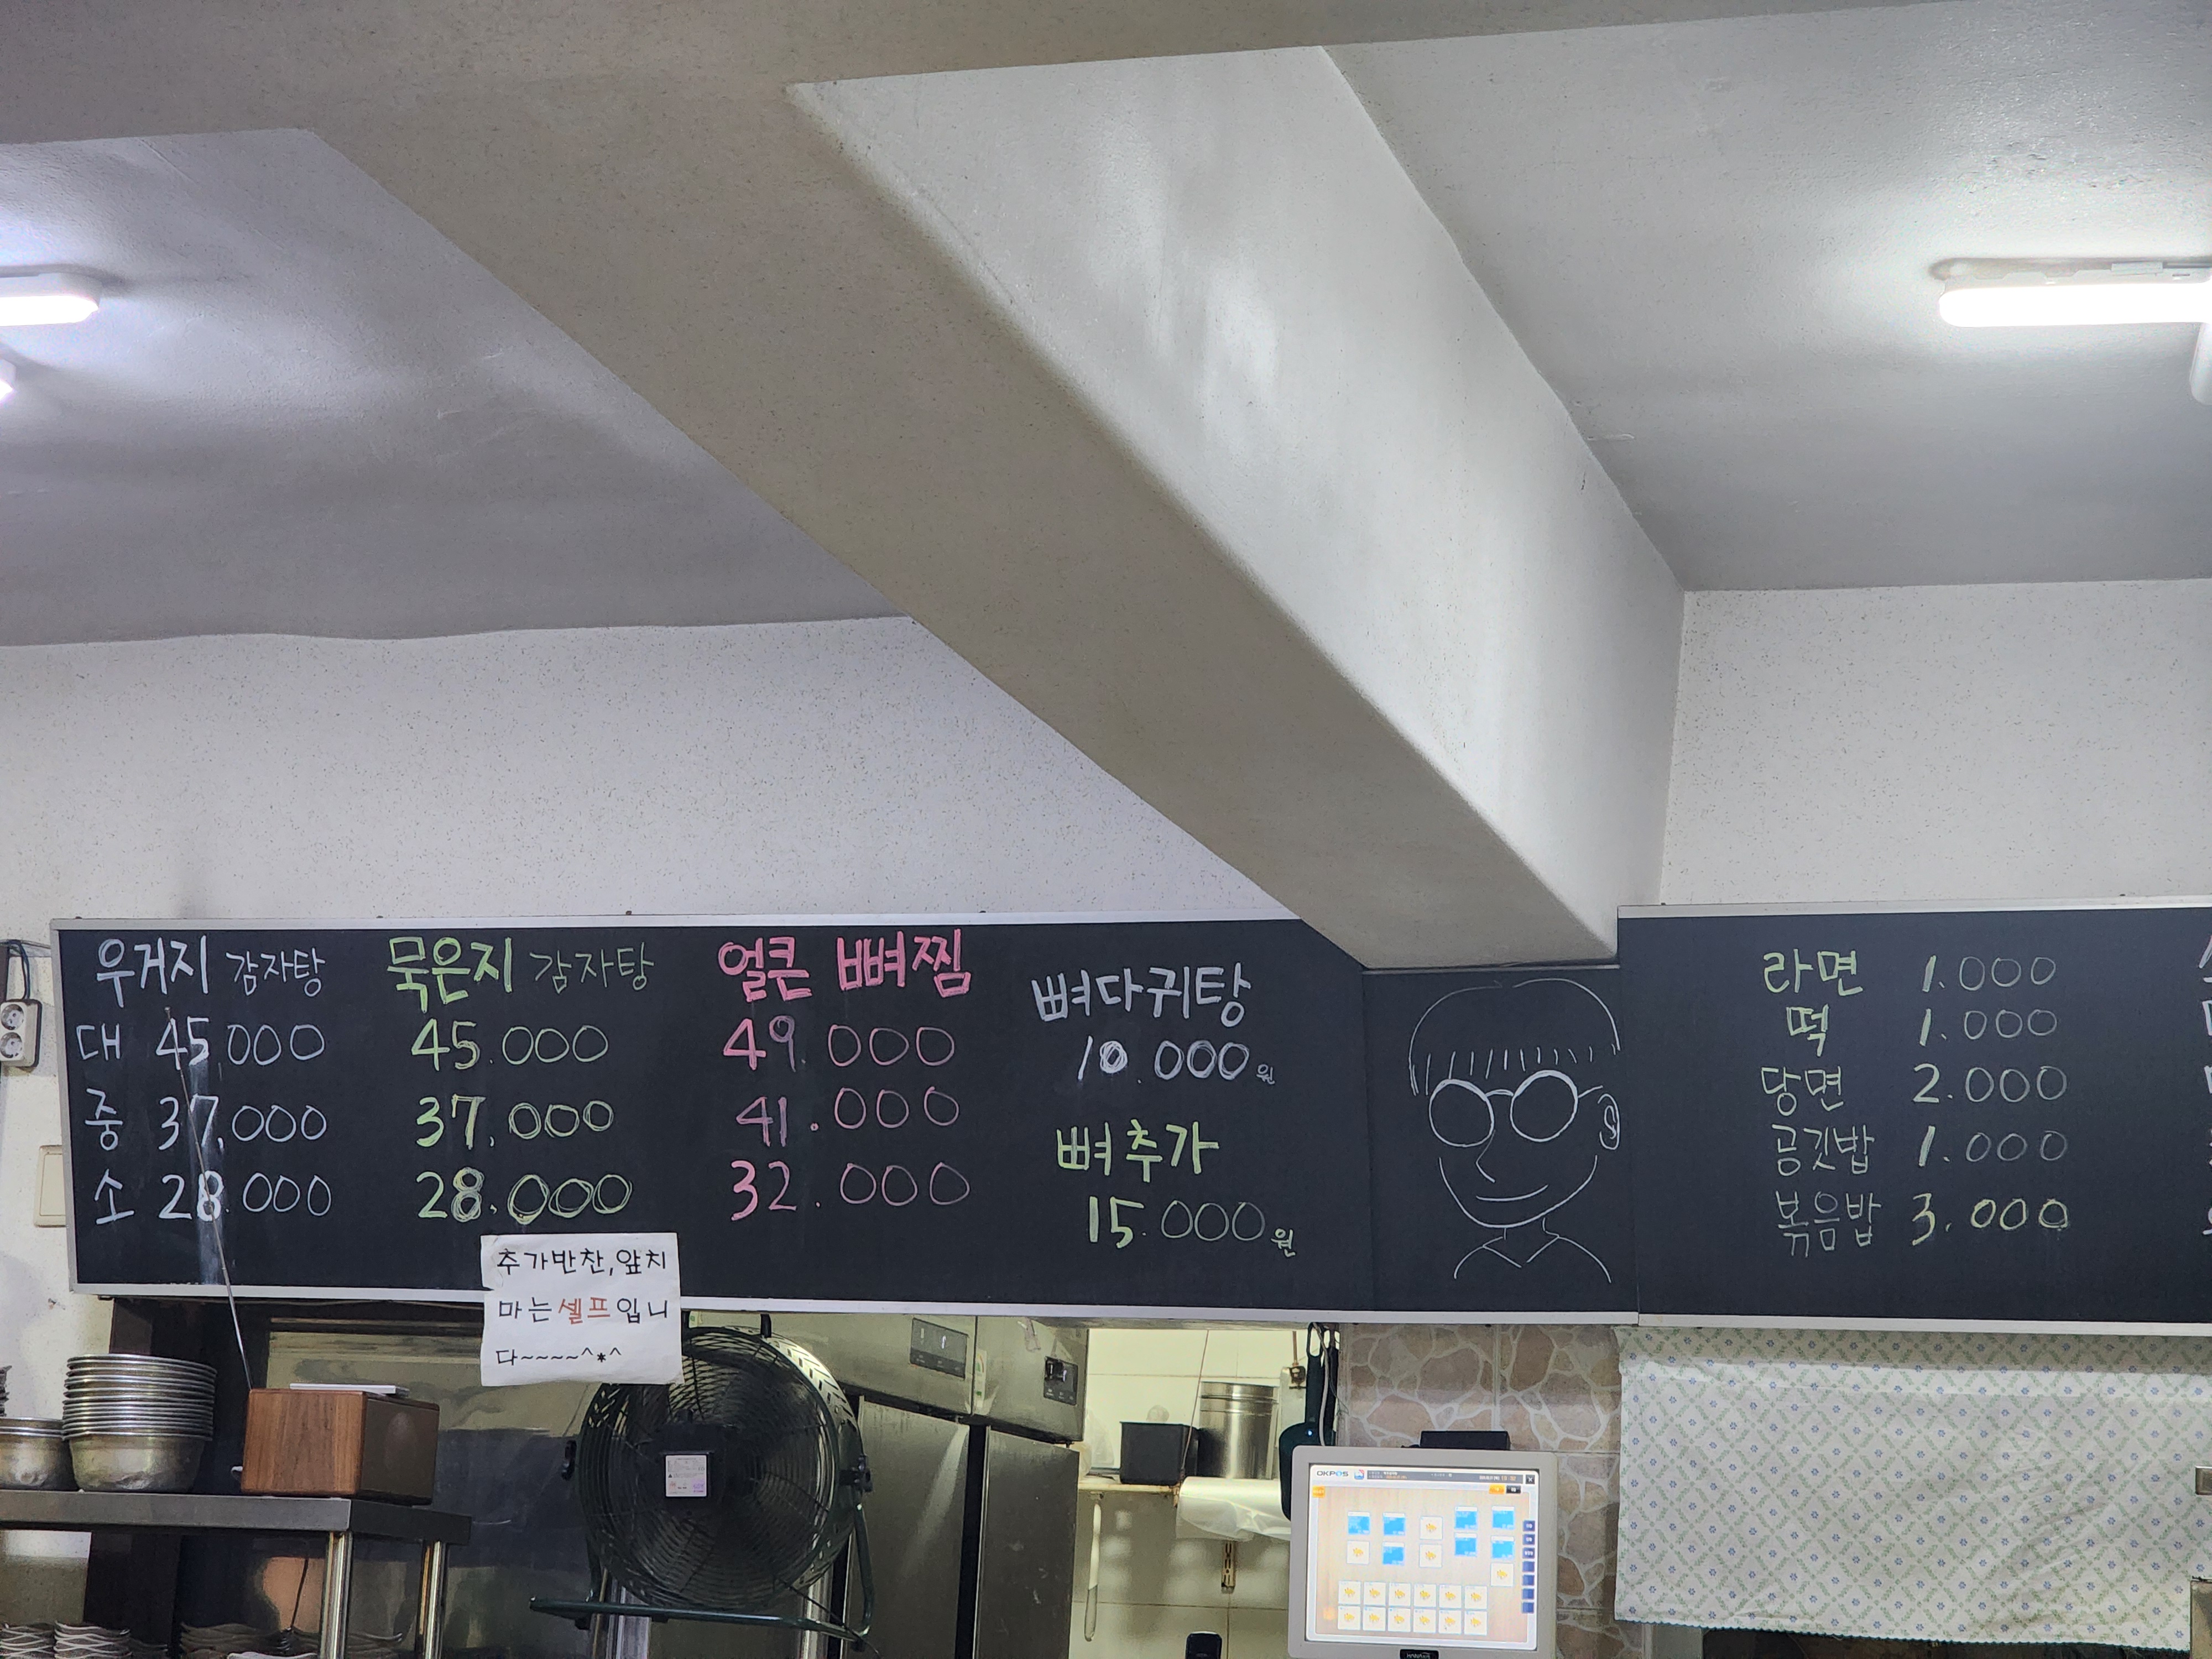 우거지 감자탕
대 45,000
중 37,000
소 28.000
묵은지 감자탕
45.000
37.000
28.000
얼큰 뼈찜
49.000
41.000
32.000
뼈다귀탕
10.000원
뼈추가
15.000원
라면 1.000
떡 1.000
당면 2.000
공깃밥 1.000
볶음밥 3.000
추가반찬,앞치
마는셀프입니
다~~~~^*^
OKPOS